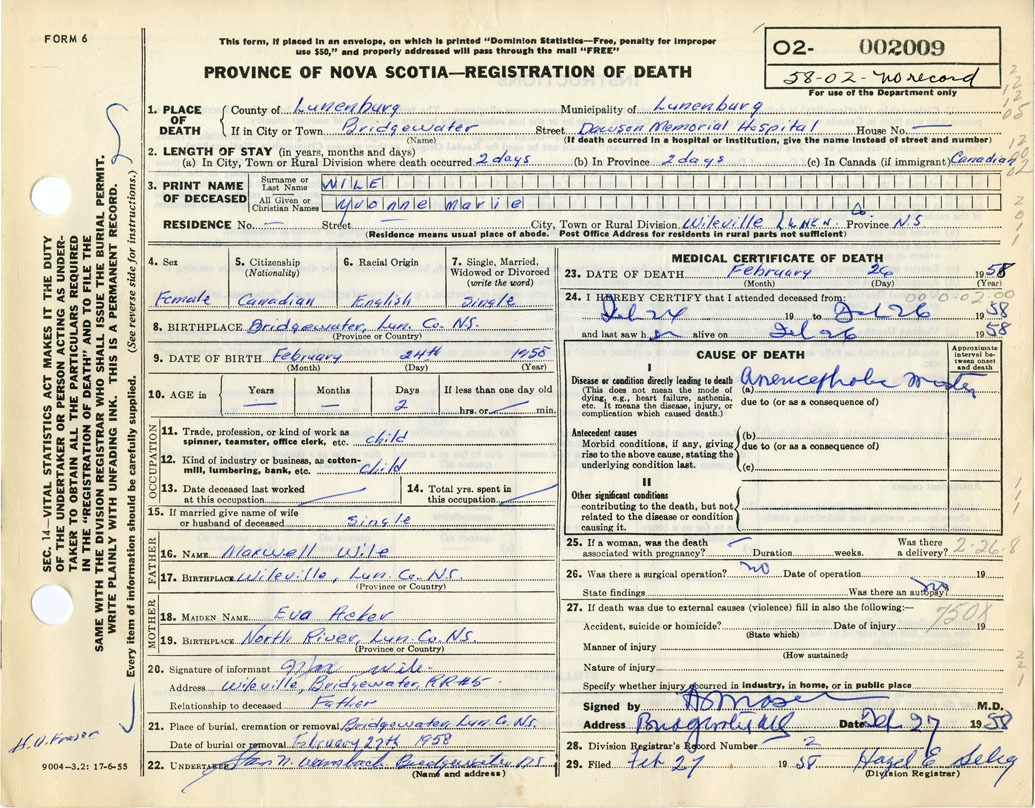 FORM 6
This form, if placed in an envelope, on which is printed "Dominion Statistics—Free, penalty for improper
use $50," and properly addressed will pass through the mail "FREE"
PROVINCE OF NOVA SCOTIA—REGISTRATION OF DEATH
02- 002009
58-02-no record
For use of the Department only
SEC. 14—VITAL STATISTICS ACT MAKES IT THE DUTY
OF THE UNDERTAKER OR PERSON ACTING AS UNDER-
TAKER TO OBTAIN ALL THE PARTICULARS REQUIRED
IN THE "REGISTRATION OF DEATH" AND TO FILE THE
SAME WITH THE DIVISION REGISTRAR WHO SHALL ISSUE THE BURIAL PERMIT.
WRITE PLAINLY WITH UNFADING INK. THIS IS A PERMANENT RECORD.
Every item of information should be carefully supplied. (See reverse side for instructions.)
1. PLACE OF DEATH County of Lunenburg Municipality of Lunenburg
If in City or Town Bridgewater Street Dawson Memorial Hospital House No. —
(Name) (If death occurred in a hospital or institution, give the name instead of street and number)
2. LENGTH OF STAY (in years, months and days)
(a) In City, Town or Rural Division where death occurred 2 days (b) In Province 2 days (c) In Canada (if immigrant) Canadian
3. PRINT NAME OF DECEASED Surname or Last Name WILE
All Given or Christian Names Yvonne Marie
RESIDENCE No. — Street City, Town or Rural Division Wileville Lunen. Co. Province N.S
(Residence means usual place of abode. Post Office Address for residents in rural parts not sufficient)
4. Sex 5. Citizenship (Nationality) 6. Racial Origin 7. Single, Married, Widowed or Divorced (write the word)
Female Canadian English Single
8. BIRTHPLACE Bridgewater, Lun. Co. N.S.
(Province or Country)
9. DATE OF BIRTH February 24th 1958
(Month) (Day) (Year)
10. AGE in Years Months Days If less than one day old
— — 2 hrs. or min.
OCCUPATION
11. Trade, profession, or kind of work as
spinner, teamster, office clerk, etc. child
12. Kind of industry or business, as cotton-
mill, lumbering, bank, etc. Child
13. Date deceased last worked
at this occupation
14. Total yrs. spent in
this occupation
15. If married give name of wife
or husband of deceased single
FATHER
16. NAME Maxwell Wile
17. BIRTHPLACE Wileville, Lun. Co. N.S.
(Province or Country)
MOTHER
18. MAIDEN NAME Eva Acker
19. BIRTHPLACE North River, Lun. Co. N.S.
(Province or Country)
20. Signature of informant Max Wile
Address Wileville, Bridgewater, RR#5
Relationship to deceased Father
21. Place of burial, cremation or removal Bridgewater, Lun. Co. N.S.
Date of burial or removal February 27th 1958
22. UNDERTAKER Bridgewater N.S.
(Name and address)
9004-3.2: 17-6-55
MEDICAL CERTIFICATE OF DEATH
23. DATE OF DEATH February 26 1958
(Month) (Day) (Year)
24. I HEREBY CERTIFY that I attended deceased from:
Feb 24 19 to Feb 26 1958
and last saw her alive on Feb 26 1958
CAUSE OF DEATH
Approximate interval between onset and death
I
Disease or condition directly leading to death
(This does not mean the mode of
dying, e.g., heart failure, asthenia,
etc. It means the disease, injury, or
complication which caused death.)
(a)
due to (or as a consequence of)
Antecedent causes
Morbid conditions, if any, giving
rise to the above cause, stating the
underlying condition last.
(b)
due to (or as a consequence of)
(c)
II
Other significant conditions
contributing to the death, but not
related to the disease or condition
causing it.
25. If a woman, was the death
associated with pregnancy? — Duration weeks. Was there a delivery? 2-26-8
26. Was there a surgical operation? no Date of operation
State findings Was there an autopsy? no
27. If death was due to external causes (violence) fill in also the following:— 750X
Accident, suicide or homicide? Date of injury 19
(State which)
Manner of injury
(How sustained)
Nature of injury
Specify whether injury occurred in industry, in home, or in public place
Signed by M.D.
Address Bridgewater Date Feb 27 1958
28. Division Registrar's Record Number 2
29. Filed Feb 27 1958 Hazel E
(Division Registrar)